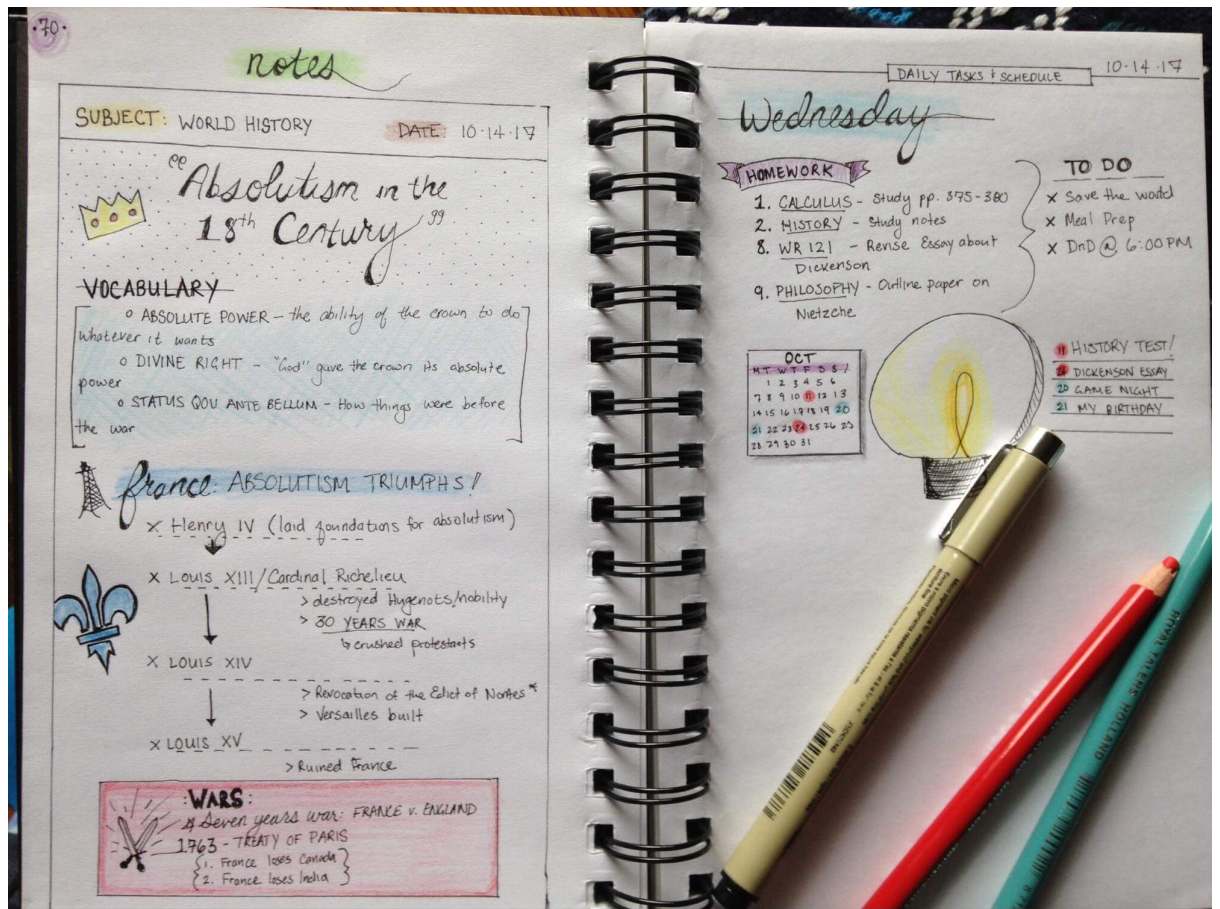 ·70·
notes
SUBJECT: WORLD HISTORY DATE: 10·14·17
"Absolutism in the
18th Century"
VOCABULARY
o ABSOLUTE POWER – the ability of the crown to do
whatever it wants
o DIVINE RIGHT – "God" gave the crown its absolute
power
o STATUS QOU ANTE BELLUM – How things were before
the war
france: ABSOLUTISM TRIUMPHS!
x Henry IV (laid foundations for absolutism)
x Louis XIII/Cardinal Richelieu
> destroyed Hugenots/nobility
> 30 YEARS WAR
↳ crushed protestants
x LOUIS XIV
> Revocation of the Edict of Nantes*
> Versailles built
x LOUIS XV
> Ruined France
:WARS:
Seven years war: FRANCE v. ENGLAND
1763 - TREATY OF PARIS
1. France loses Canada
2. France loses India
DAILY TASKS & SCHEDULE 10·14·17
Wednesday
HOMEWORK
1. CALCULUS - Study pp. 375-380
2. HISTORY - Study notes
8. WR 121 - Revise Essay about
Dickenson
9. PHILOSOPHY - Outline paper on
Nietzche
TO DO
x Save the world
x Meal Prep
x DnD @ 6:00 PM
OCT
M T W T F S S
1 2 3 4 5 6
7 8 9 10 11 12 13
14 15 16 17 18 19 20
21 22 23 24 25 26 23
28 29 30 31
11 HISTORY TEST!
24 DICKENSON ESSAY
20 GAME NIGHT
21 MY BIRTHDAY
ROYAL TALENS HOLLAND